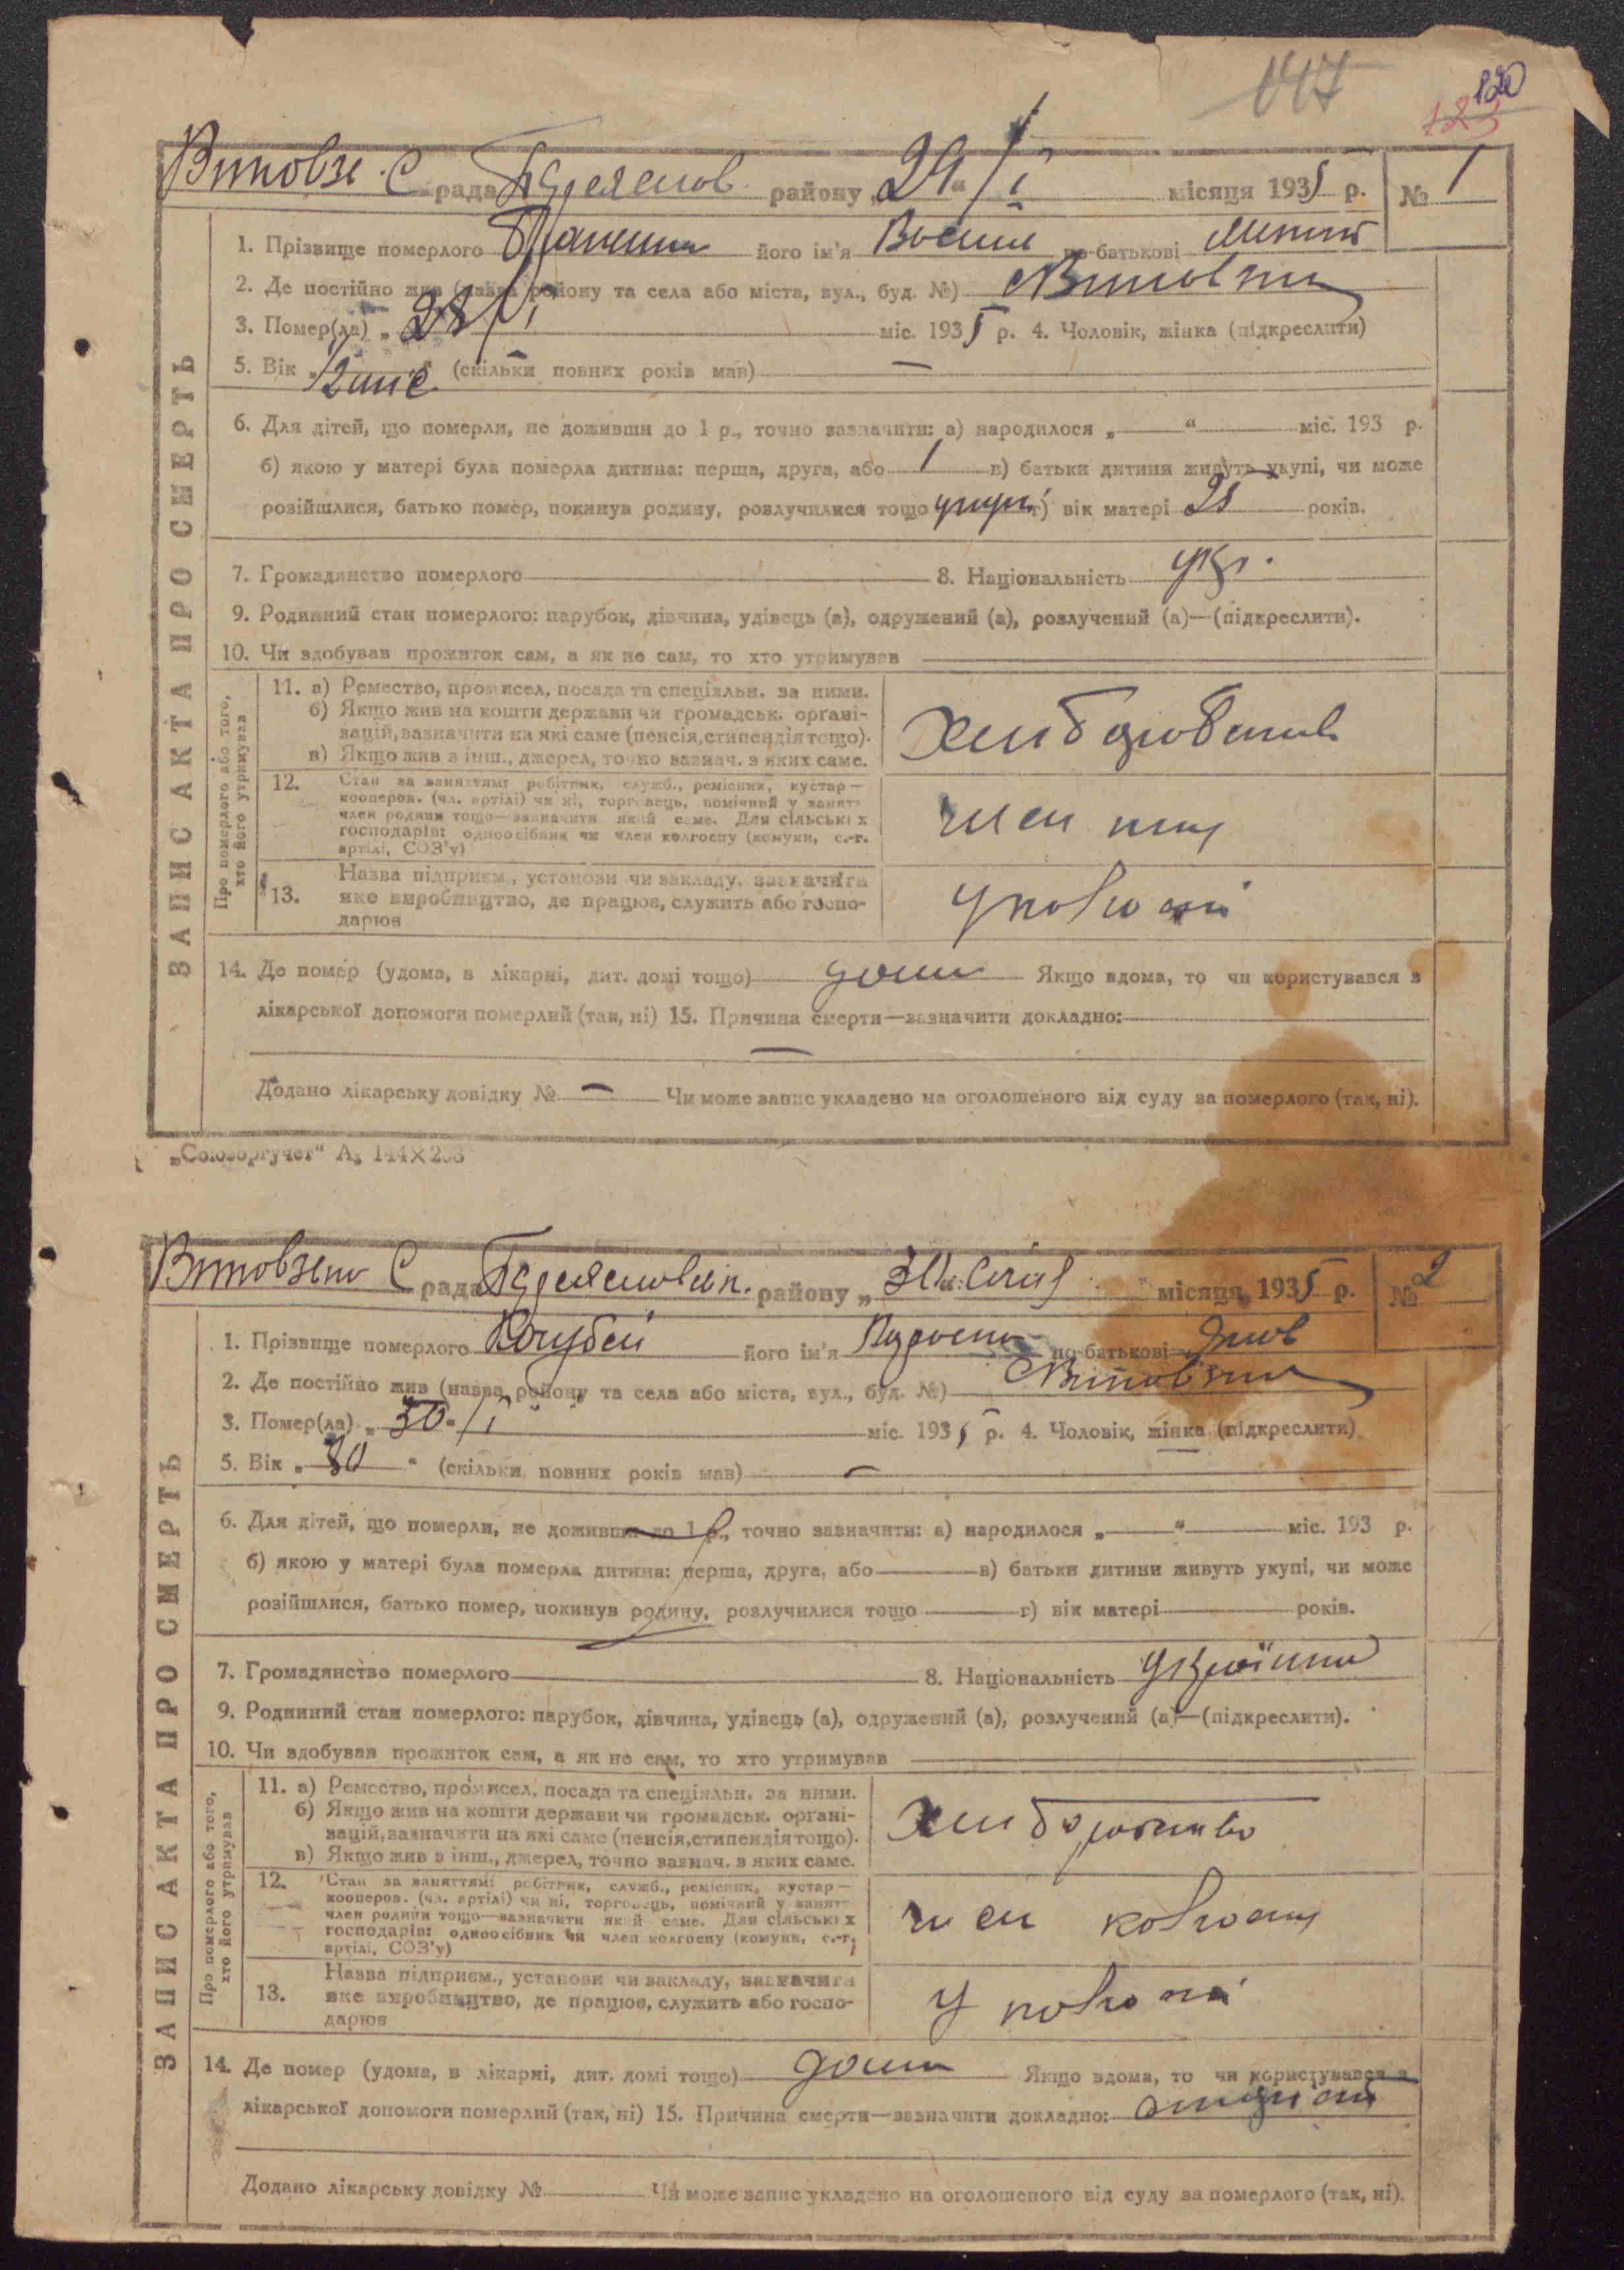 147
120
123
рада району „29“ / I місяця 1935 р. № 1
ЗАПИС АКТА ПРО СМЕРТЬ
1. Прізвище померлого його ім'я по-батькові
2. Де постійно жив (назва району та села або міста, вул., буд. №)
3. Помер(ла) „28/I міс. 1935 р. 4. Чоловік, жінка (підкреслити)
5. Вік „ “ (скільки повних років мав) —
6. Для дітей, що померли, не доживши до 1 р., точно зазначити: а) народилося „ “ міс. 193 р.
б) якою у матері була померла дитина: перша, друга, або 1 в) батьки дитини живуть укупі, чи може
розійшлися, батько помер, покинув родину, розлучилися тощо укупі г) вік матері років.
7. Громадянство померлого 8. Національність укр.
9. Родинний стан померлого: парубок, дівчина, удівець (а), одружений (а), розлучений (а)—(підкреслити).
10. Чи здобував прожиток сам, а як не сам, то хто утримував
Про померлого або того, хто його утримував
11. а) Ремество, промисел, посада та спеціяльн. за ними.
б) Якщо жив на кошти держави чи громадськ. органі-
зацій, зазначити на які саме (пенсія, стипендія тощо).
в) Якщо жив з інш., джерел, точно зазнач. з яких саме.
12. Стан за заняттям: робітник, служб., ремісник, кустар—
кооперов. (чл. артілі) чи ні, торговець, помічний у занятт
член родини тощо—зазначити який саме. Для сільських
господарів: одноосібник чи член колгоспу (комуни, с.-г.
артілі, СОЗ'у)
член
13. Назва підприєм., установи чи закладу, зазначити
яке виробництво, де працює, служить або госпо-
дарює
у колгоспі
14. Де помер (удома, в лікарні, дит. домі тощо) дома Якщо вдома, то чи користувався з
лікарської допомоги померлий (так, ні) 15. Причина смерти—зазначити докладно:
—
Додано лікарську довідку № — Чи може запис укладено на оголошеного від суду за померлого (так, ні).
„Союзоргучет“ А₅ 144×203
рада району „ місяця 1935 р. № 2
ЗАПИС АКТА ПРО СМЕРТЬ
1. Прізвище померлого Кочубей його ім'я по-батькові
2. Де постійно жив (назва району та села або міста, вул., буд. №)
3. Помер(ла) „30“/I міс. 1935 р. 4. Чоловік, жінка (підкреслити)
5. Вік „ 80 “ (скільки повних років мав) —
6. Для дітей, що померли, не доживши до 1 р., точно зазначити: а) народилося „ “ міс. 193 р.
б) якою у матері була померла дитина: перша, друга, або в) батьки дитини живуть укупі, чи може
розійшлися, батько помер, покинув родину, розлучилися тощо г) вік матері років.
7. Громадянство померлого 8. Національність
9. Родинний стан померлого: парубок, дівчина, удівець (а), одружений (а), розлучений (а)—(підкреслити).
10. Чи здобував прожиток сам, а як не сам, то хто утримував
Про померлого або того, хто його утримував
11. а) Ремество, промисел, посада та спеціяльн. за ними.
б) Якщо жив на кошти держави чи громадськ. органі-
зацій, зазначити на які саме (пенсія, стипендія тощо).
в) Якщо жив з інш., джерел, точно зазнач. з яких саме.
12. Стан за заняттям: робітник, служб., ремісник, кустар—
кооперов. (чл. артілі) чи ні, торговець, помічний у занятт
член родини тощо—зазначити який саме. Для сільських
господарів: одноосібник чи член колгоспу (комуни, с.-г.
артілі, СОЗ'у)
член колгоспу
13. Назва підприєм., установи чи закладу, зазначити
яке виробництво, де працює, служить або госпо-
дарює
у колгоспі
14. Де помер (удома, в лікарні, дит. домі тощо) дома Якщо вдома, то чи користувався з
лікарської допомоги померлий (так, ні) 15. Причина смерти—зазначити докладно:
Додано лікарську довідку № Чи може запис укладено на оголошеного від суду за померлого (так, ні).